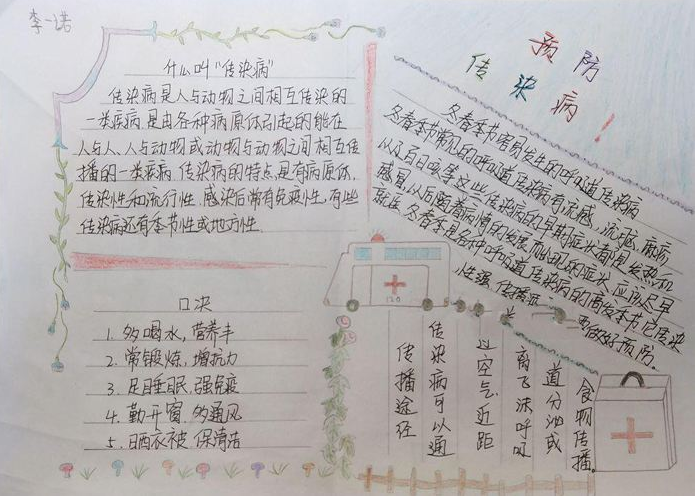 李一诺
什么叫“传染病”
传染病是人与动物之间相互传染的
一类疾病,是由各种病原体引起的能在
人与人、人与动物或动物与动物之间相互传
播的一类疾病 传染病的特点是有病原体,
传染性和流行性 感染后常有免疫性,有些
传染病还有季节性或地方性.
口决
1. 多喝水,营养丰
2. 常锻炼,增抗力
3. 足睡眠,强免疫
4. 勤开窗,多通风
5. 日晒衣被 保清洁
预防
传染病!
冬春季节容易发生的呼吸道传染病
冬春季节常见的呼吸道传染病有流感,
以及百日咳等这些传染病的早期症状都是发热和
感冒,以后随着病情的发展而出现
就医.冬春季是各种呼吸道传染病的高发季节它传染
性强,传播
做好预防.
120
传播途径
传染病可以通
过空气,近距
离飞沫呼吸
道分泌或
食物传播。